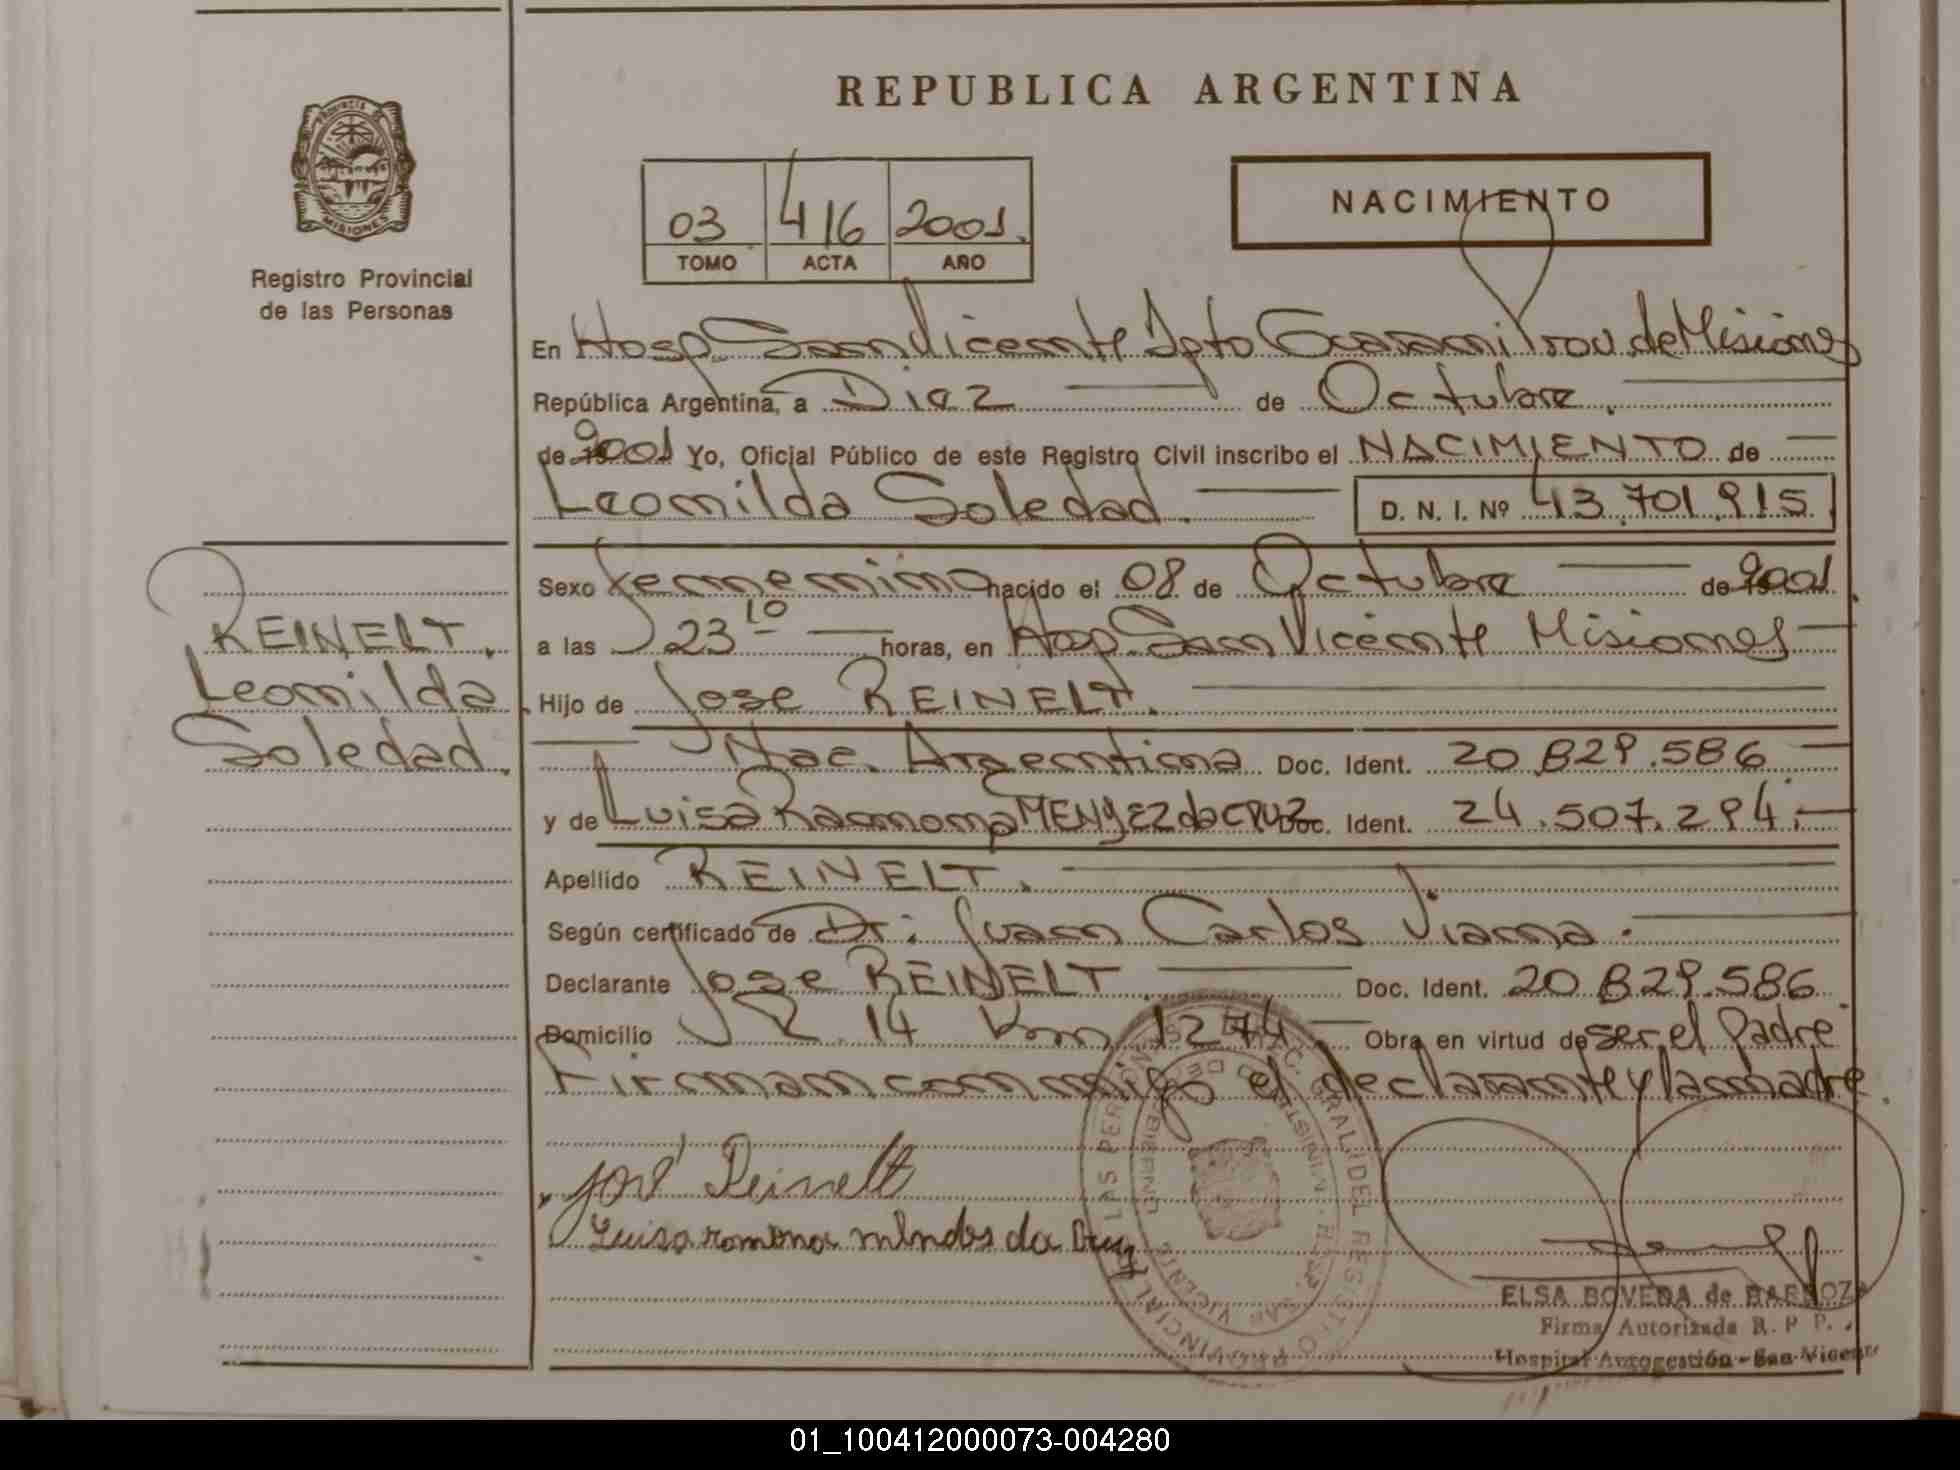 REPUBLICA ARGENTINA
PROVINCIA
MISIONES
Registro Provincial
de las Personas
03 416 2001.
TOMO ACTA AÑO
NACIMIENTO
En Hosp San Vicente Dpto Guarani Prov. de Misiones
República Argentina, a Diez de Octubre.
de 2001 Yo, Oficial Público de este Registro Civil inscribo el NACIMIENTO de
Leonilda Soledad. D. N. I. Nº 43.701.915
REINELT.
Leonilda
Soledad.
Sexo femenino nacido el 08 de Octubre de 2001.
a las 23 10 horas, en Hosp. San Vicente Misiones
Hijo de Jose REINELT.
Nac. Argentina Doc. Ident. 20.829.586
y de Luisa Ramona MENDEZ da CRUZ Doc. Ident. 24.507.294.-
Apellido REINELT.
Según certificado de Dr: Juan Carlos Viana.
Declarante Jose REINELT Doc. Ident. 20.829.586
Domicilio R. 14 Km 1274 Obra en virtud de ser el Padre
Firman conmigo el declarante y la madre.
José Reinelt
Luisa romona mendes da Cruz
ELSA BOVEDA de BARBOZA
Firma Autorizada R. P. P.
Hospital Autogestión - San Vicente
01_100412000073-004280